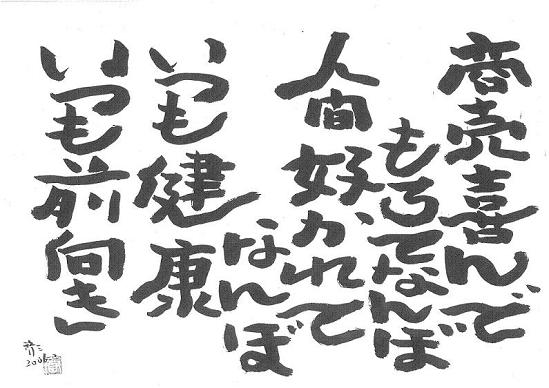 商売喜んで
もろてなんぼ
人間好かれて
なんぼ
いつも健康
いつも前向き
2006